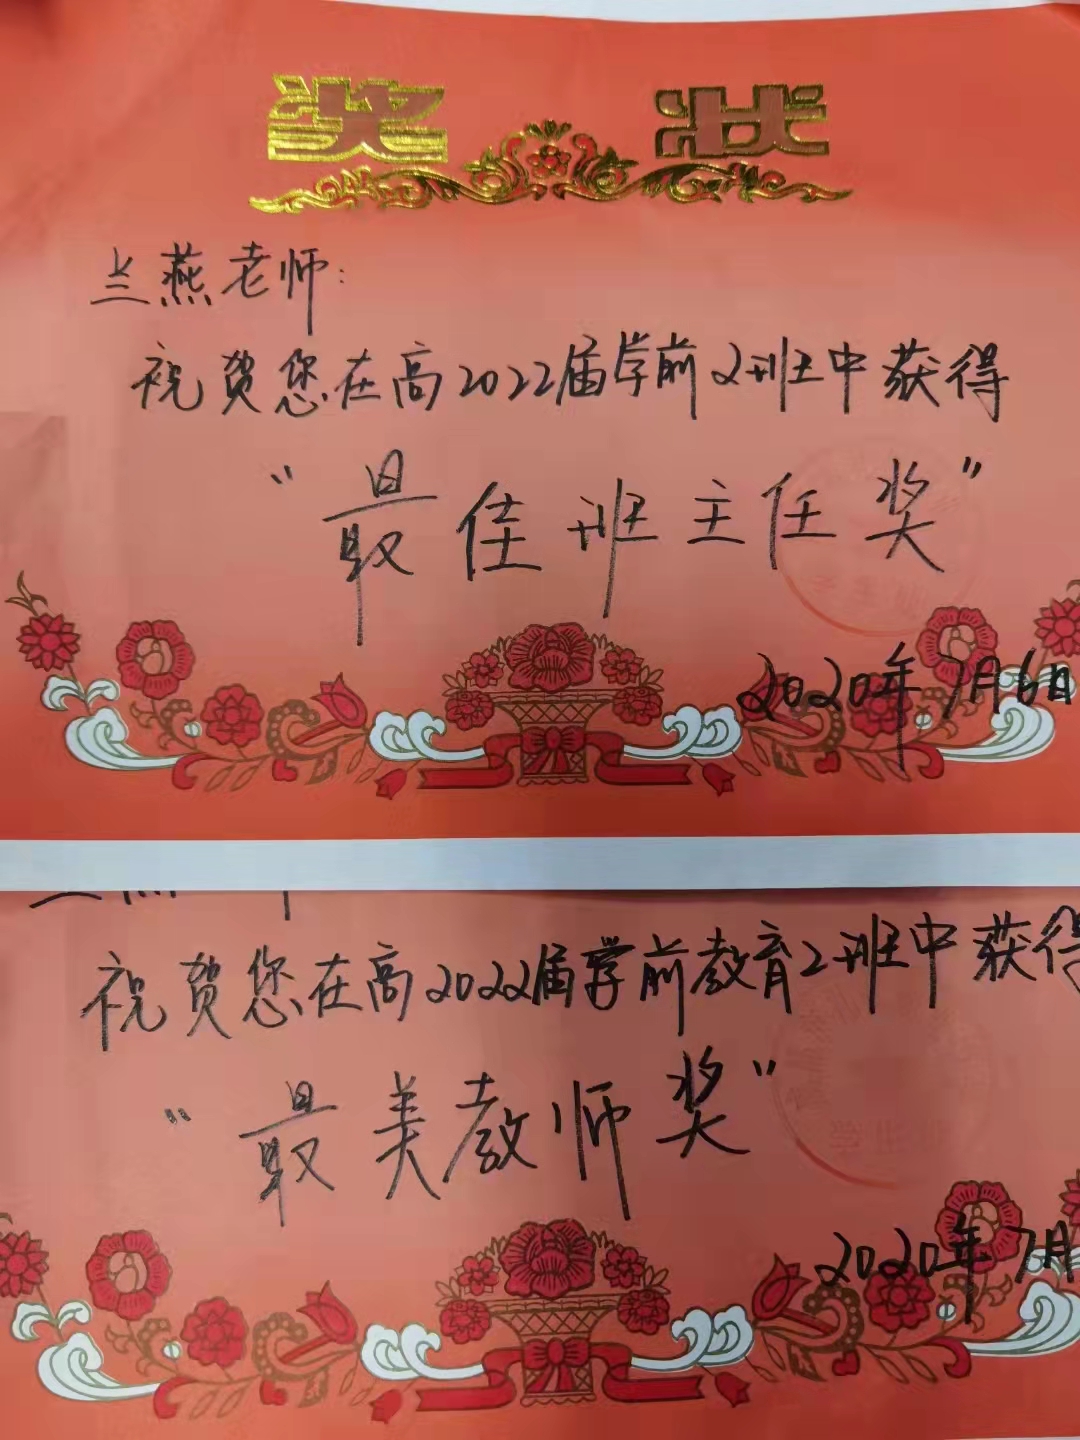 奖状
兰燕老师:
祝贺您在高2022届学前2班中获得
“最佳班主任奖”
2020年7月6日
祝贺您在高2022届学前教育2班中获得
“最美教师奖”
2020年7月